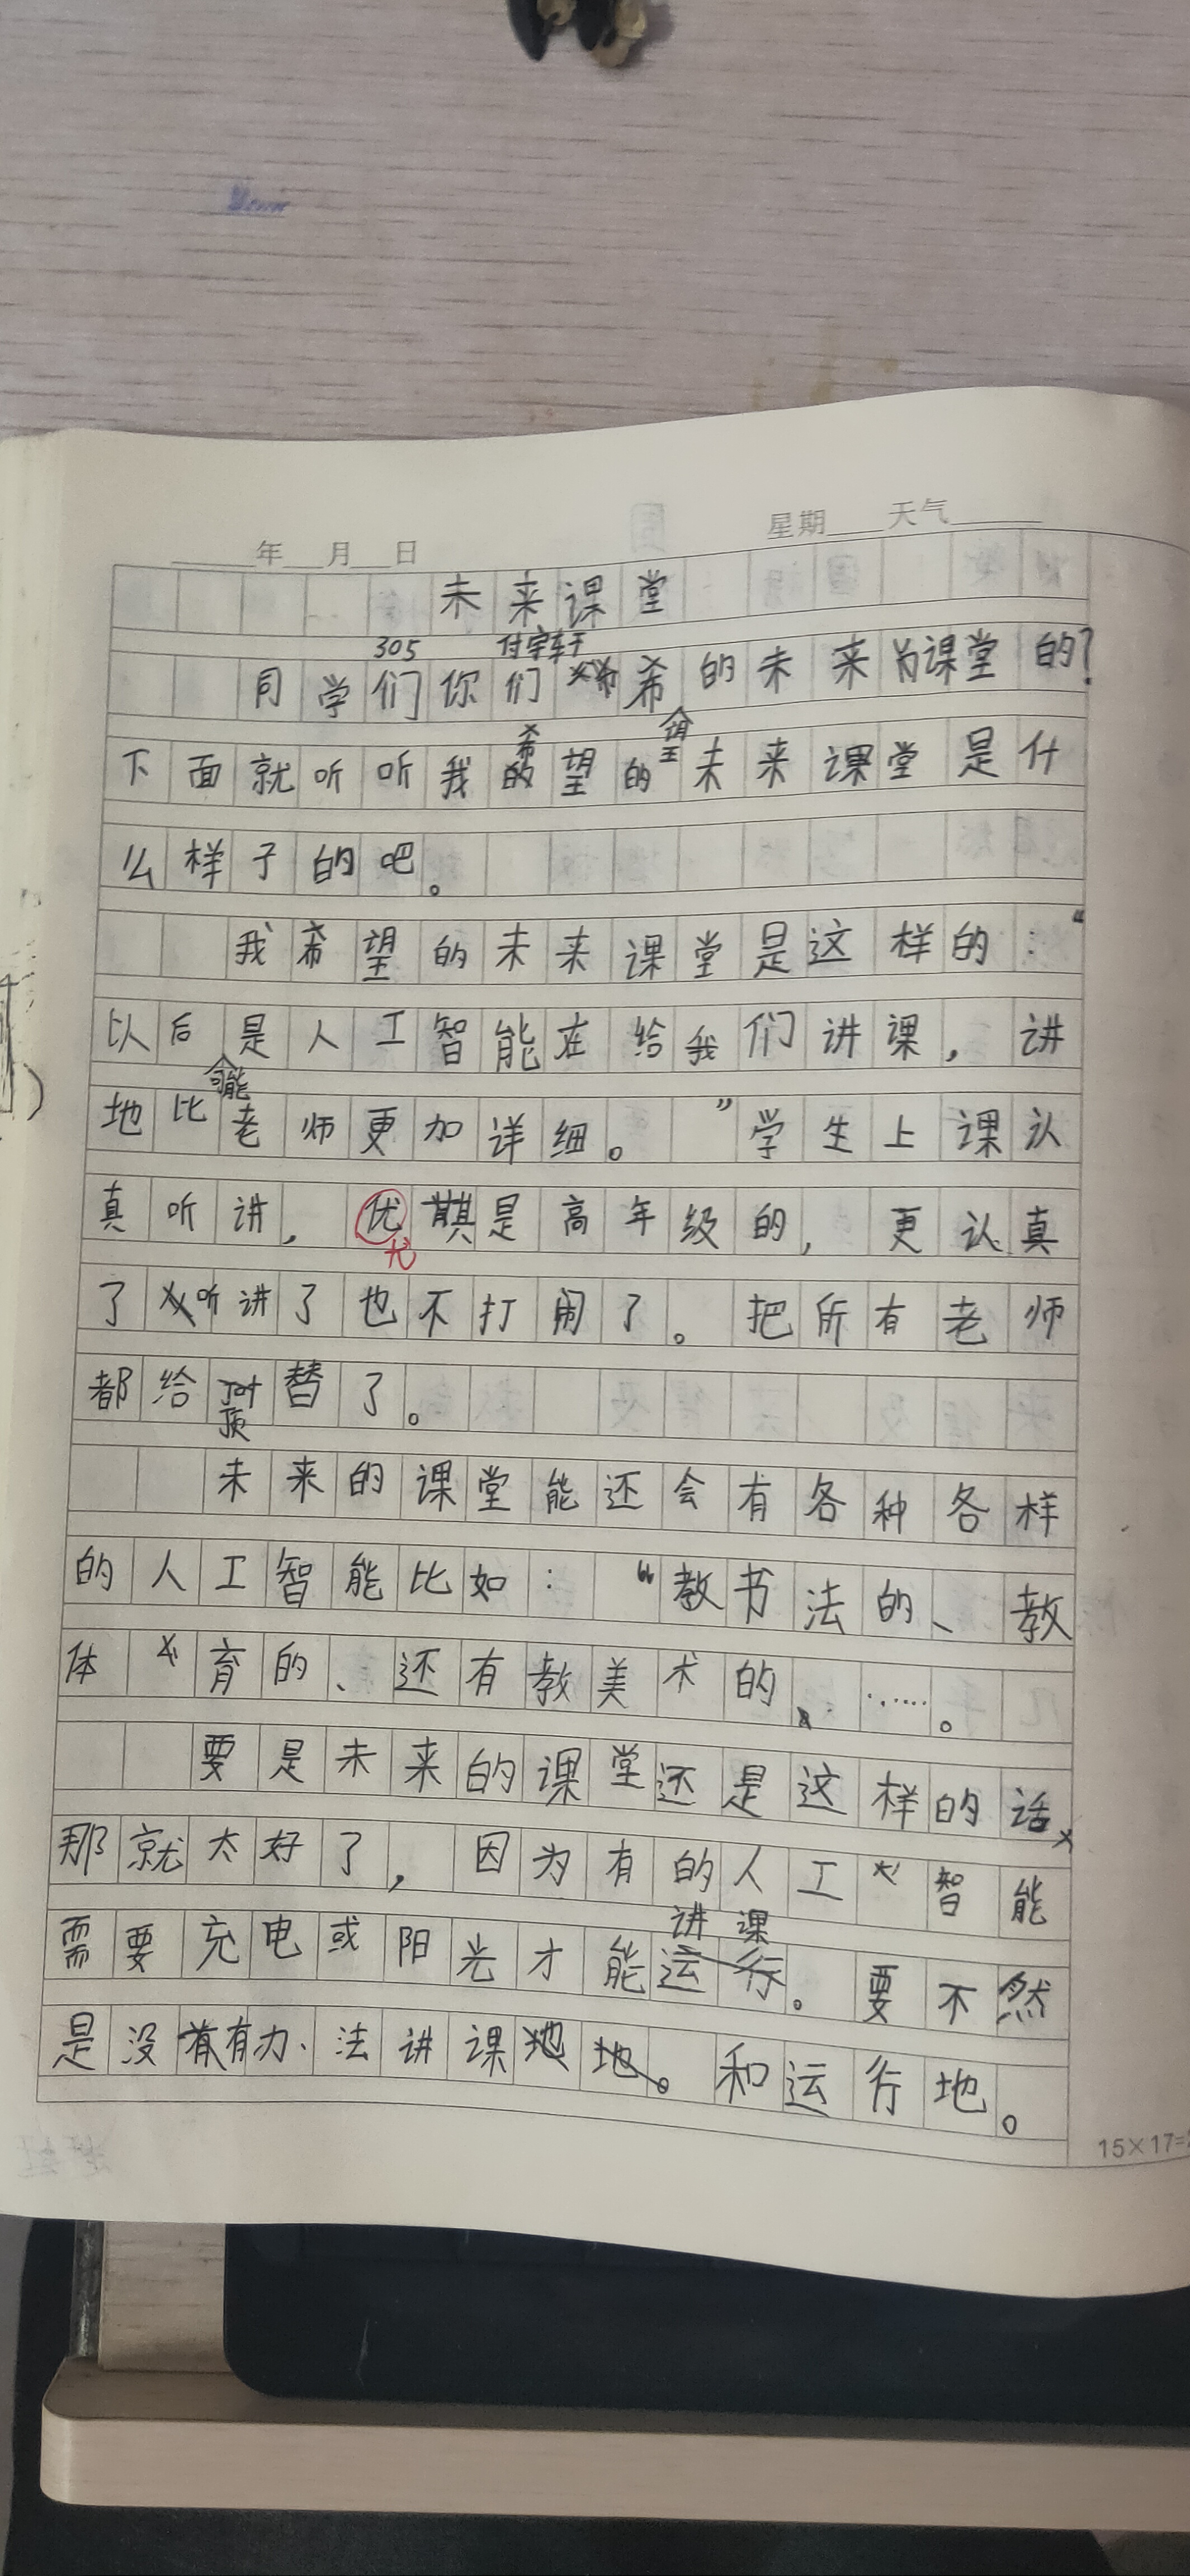 年 月 日 星期 天气
未来课堂
305 付宇轩
同学们你们希的未来为课堂的?
下面就听听我希望的望未来课堂是什
么样子的吧。
我希望的未来课堂是这样的:“
以后是人工智能在给我们讲课,讲
地比能老师更加详细。”学生上课认
真听讲,优其是高年级的,更认真
尤
了听讲了也不打闹了。把所有老师
都给顶替了。
未来的课堂能还会有各种各样
的人工智能比如:“教书法的、教
体育的、还有教美术的、……。
要是未来的课堂还是这样的话
那就太好了,因为有的人工智能
需要充电或阳光才能讲课。要不然
是没有办法讲课地。和运行地。
15×17=